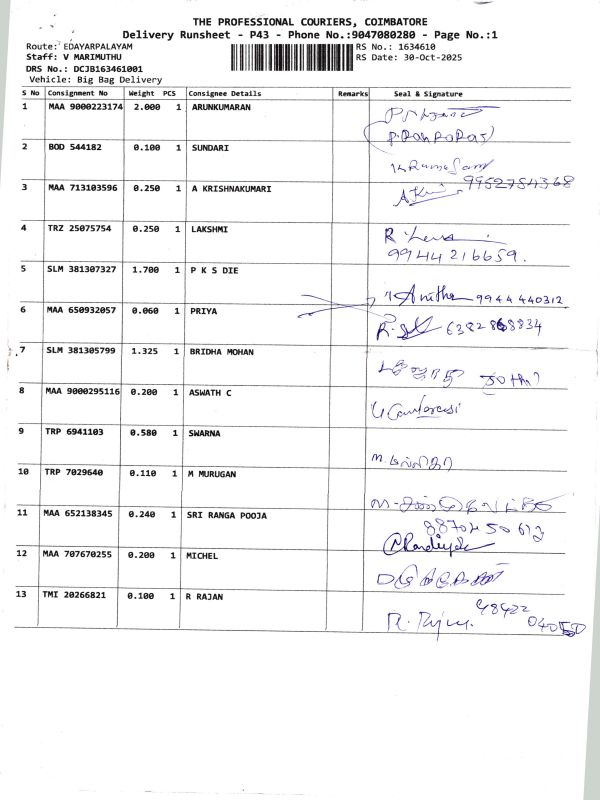 THE PROFESSIONAL COURIERS, COIMBATORE
Delivery Runsheet - P43 - Phone No.:9047080280 - Page No.:1
Route: EDAYARPALAYAM RS No.: 1634610
Staff: V MARIMUTHU RS Date: 30-Oct-2025
DRS No.: DCJB163461001
Vehicle: Big Bag Delivery
S No Consignment No Weight PCS Consignee Details Remarks Seal & Signature
1 MAA 9000223174 2.000 1 ARUNKUMARAN
2 BOD 544182 0.100 1 SUNDARI
3 MAA 713103596 0.250 1 A KRISHNAKUMARI 9952784368
4 TRZ 25075754 0.250 1 LAKSHMI
9944216659.
5 SLM 381307327 1.700 1 P K S DIE
Anitha 9944440312
6 MAA 650932057 0.060 1 PRIYA
7 SLM 381305799 1.325 1 BRIDHA MOHAN
8 MAA 9000295116 0.200 1 ASWATH C
9 TRP 6941103 0.580 1 SWARNA
10 TRP 7029640 0.110 1 M MURUGAN
11 MAA 652138345 0.240 1 SRI RANGA POOJA
12 MAA 707670255 0.200 1 MICHEL
13 TMI 20266821 0.100 1 R RAJAN